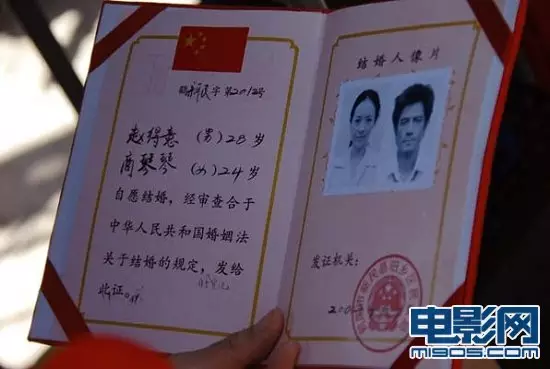 字第2012号
赵得意 (男)28岁
商琴琴 (女)24岁
自愿结婚，经审查合于
中华人民共和国婚姻法
关于结婚的规定，发给
此证。
结婚人像片
发证机关：
电影网
m1905.com